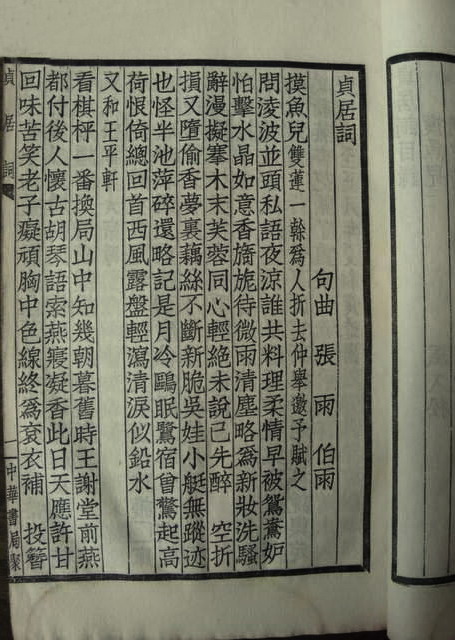 貞居詞
句曲　張　雨　伯雨
摸魚兒雙蓮一榦爲人折去仲舉邀予賦之
問淩波並頭私語夜涼誰共料理柔情早被鴛鴦妒
怕擊水晶如意香旖旎待微雨清塵略爲新妝洗騷
辭漫擬搴木末芙蓉同心輕絶未說已先醉　空折
損又墮偷香夢裏藕絲不斷新脆吳娃小艇無蹤迹
也怪半池萍碎還略記是月冷鷗眠鷺宿曾驚起高
荷恨倚總回首西風露盤輕瀉清淚似鉛水
又和王平軒
看棋枰一番換局山中知幾朝暮舊時王謝堂前燕
都付後人懷古胡琴語索燕寢凝香此日天應許甘
回味苦笑老子癡頑胸中色線終爲袞衣補　投簪
貞居詞
一
中華書局聚